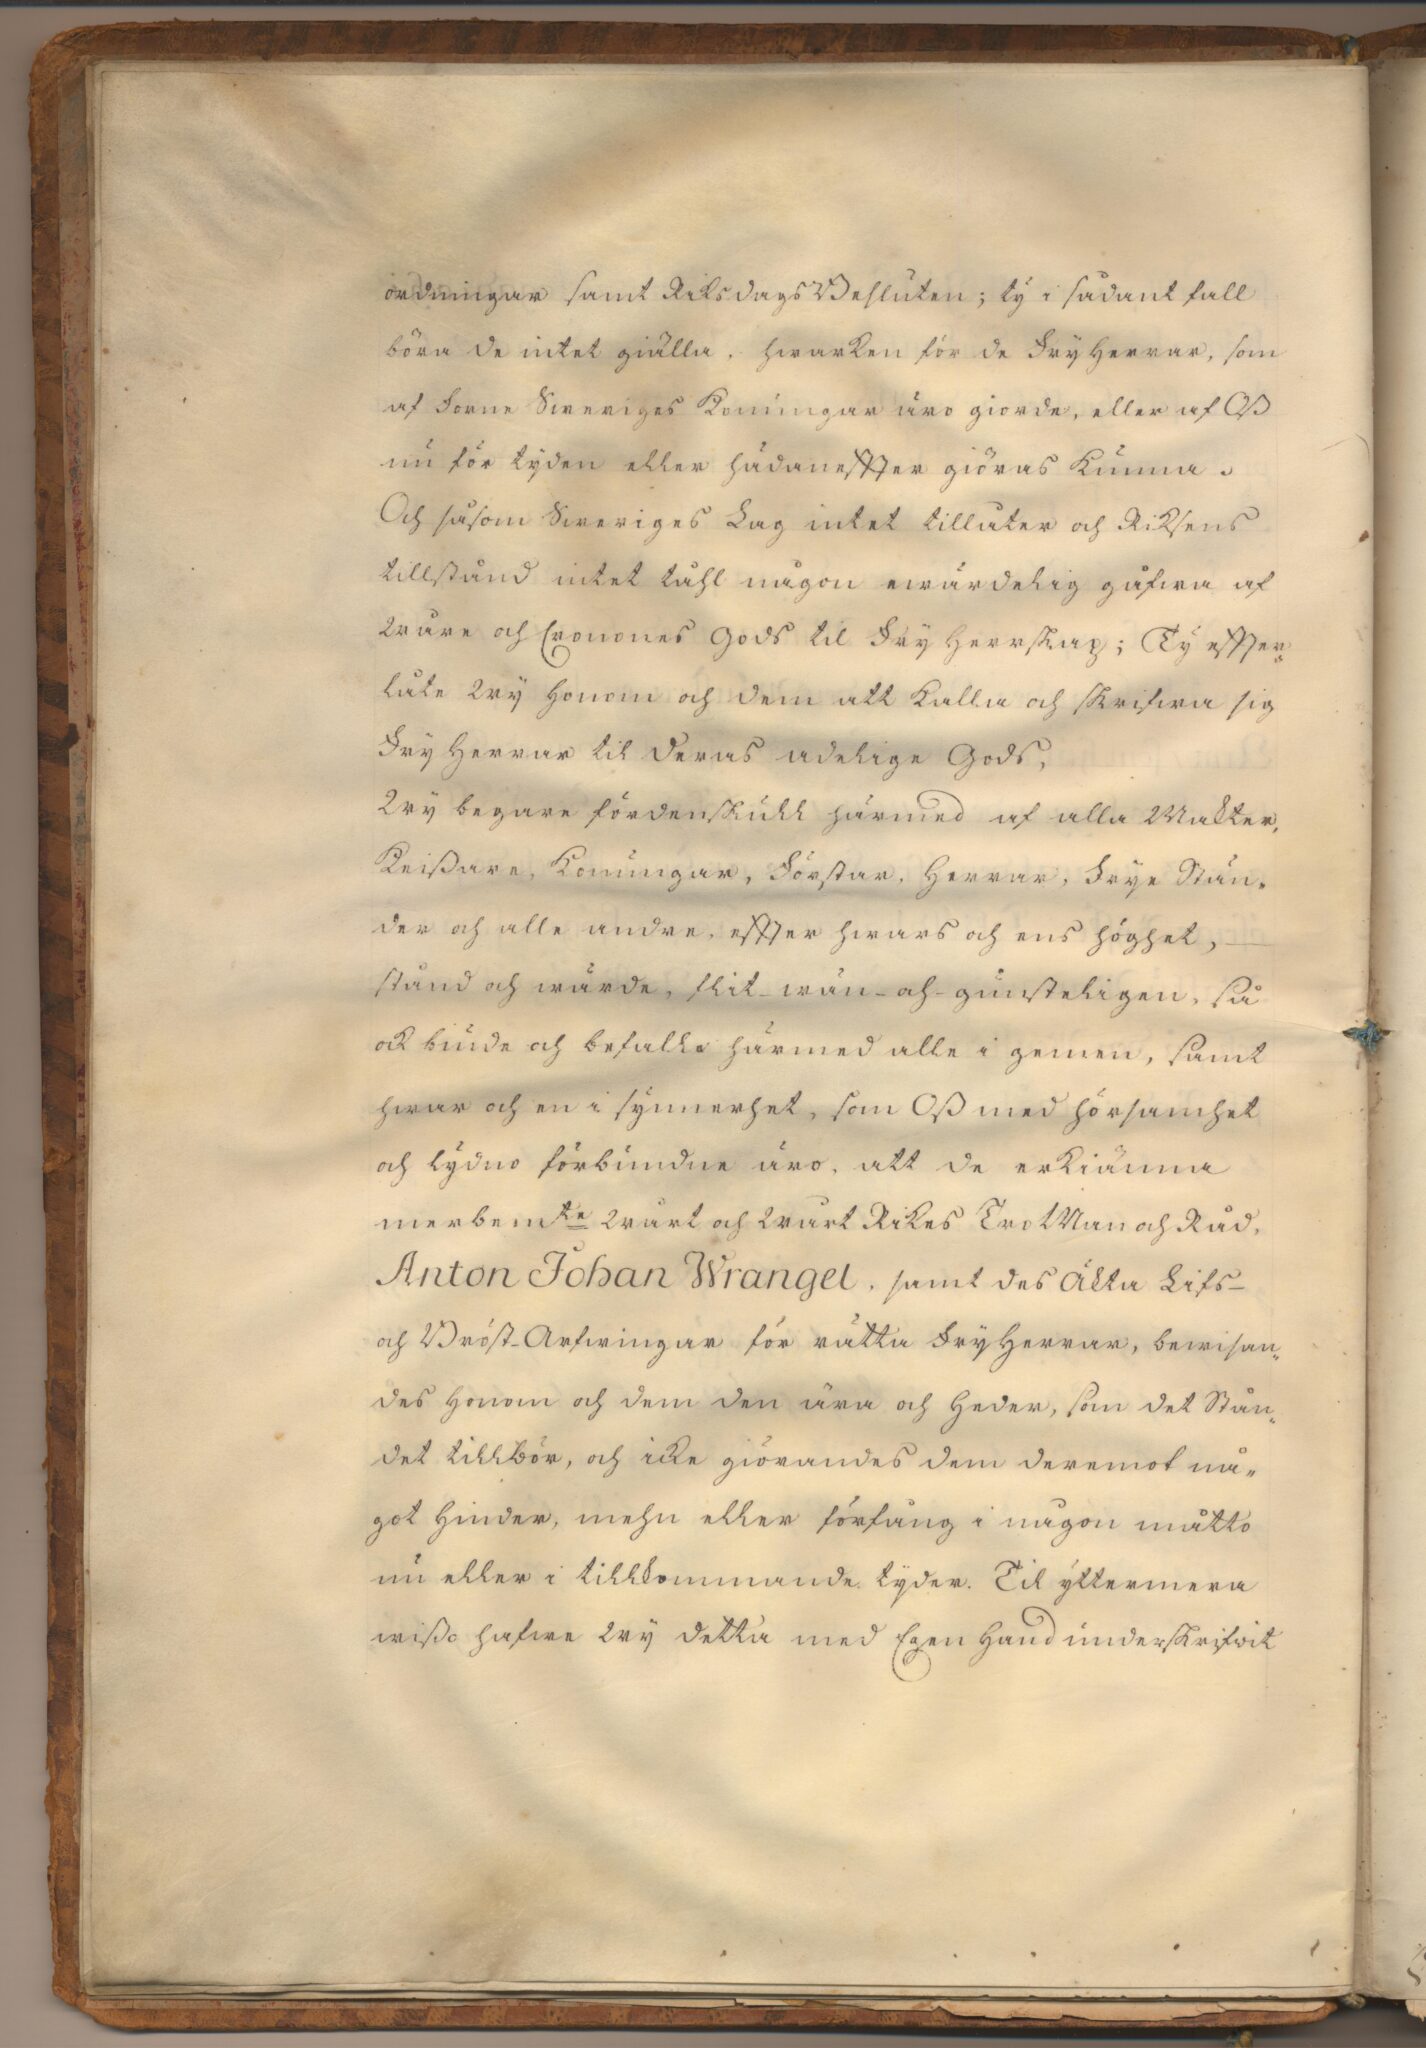 ordningar samt RiksdagsBesluten; ty i sådant fall
böra de intet giälla, hwarken för de FryHerrar, som
af Forne Sweriges Konungar äro giorde, eller af Oß
nu för tyden eller hädaneffter giöras kunna.
Och såsom Sweriges Lag intet tillåter och Riksens
tillstånd intet tåhl någon ewärdelig gåfwa af
Wåre och Cronones Gods til FryHerrskap; Ty effter„
låte Wy Honom och dem att kalla och skrifwa sig
FryHerrar til deras adelige Gods,
Wy begäre fördenskull härmed af alla Makter,
Keißare, Konungar, Förstar, Herrar, Frye Stän„
der och alle andre, effter hwars och ens höghet,
stånd och wärde, flit-wän-och-gunsteligen, så
ok biude och befalle härmed alle i gemen, samt
hwar och en i synnerhet, som Oß med hörsamhet
och lydno förbundne äro, att de erkiänna
merbemte Wårt och Wårt Rikes TroMan och Råd,
Anton Johan Wrangel, samt des Äkta Lifs-
och Bröst-Arfwingar för rätta FryHerrar, bewisan„
des Honom och dem den ära och Heder, som det Stån„
det tillbör, och icke giörandes dem deremot nå„
got Hinder, mehn eller förfång i någon måtto
nu eller i tillkommande tyder. Til yttermera
wißo hafwe Wy detta med Egen Hand underskrifwit